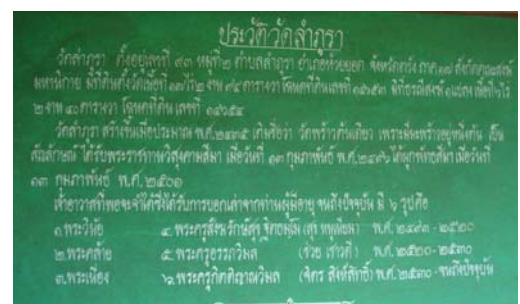 ประวัติวัดลำภูรา
วัดลำภูรา ตั้งอยู่เลขที่ ๙๓ หมู่ที่ ๒ ตำบลลำภูรา อำเภอห้วยยอด จังหวัดตรัง ภาค ๑๗ สังกัดคณะสงฆ์
มหานิกาย มีที่ดินตั้งวัดเนื้อที่ ไร่ ๒ งาน ๙๔ ตารางวา โฉนดที่ดิน เลขที่ มีที่ธรณีสงฆ์ ๑ แปลง เนื้อที่ ไร่
๒ งาน ๘๐ ตารางวา โฉนดที่ดิน เลขที่
วัดลำภูรา สร้างขึ้นเมื่อประมาณ พ.ศ. เดิมชื่อว่า วัดพร้าวต้นเดียว เพราะมีมะพร้าวอยู่หนึ่งต้น เป็น
สัญลักษณ์ ได้รับพระราชทานวิสุงคามสีมา เมื่อวันที่ ๑๓ กุมภาพันธ์ พ.ศ. ได้ผูกพัทธสีมา เมื่อวันที่
๑๓ กุมภาพันธ์ พ.ศ. ๒๕๐๑
เจ้าอาวาสที่พอจะจำได้ซึ่งได้รับการบอกเล่าจากท่านผู้มีอายุ จนถึงปัจจุบัน มี ๖ รูป คือ
๑. พระวินัย ๔. พระครูสังฆรักษ์สุข พ.ศ. ๒๔๙๓ - ๒๕๒๐
๒. พระคล้าย ๕. พระครูอรรถวิมล พ.ศ. ๒๕๒๐ - ๒๕๓๐
๓. พระเนื่อง ๖. พระครูกิตติญาณวิมล พ.ศ. ๒๕๓๐ - จนถึงปัจจุบัน